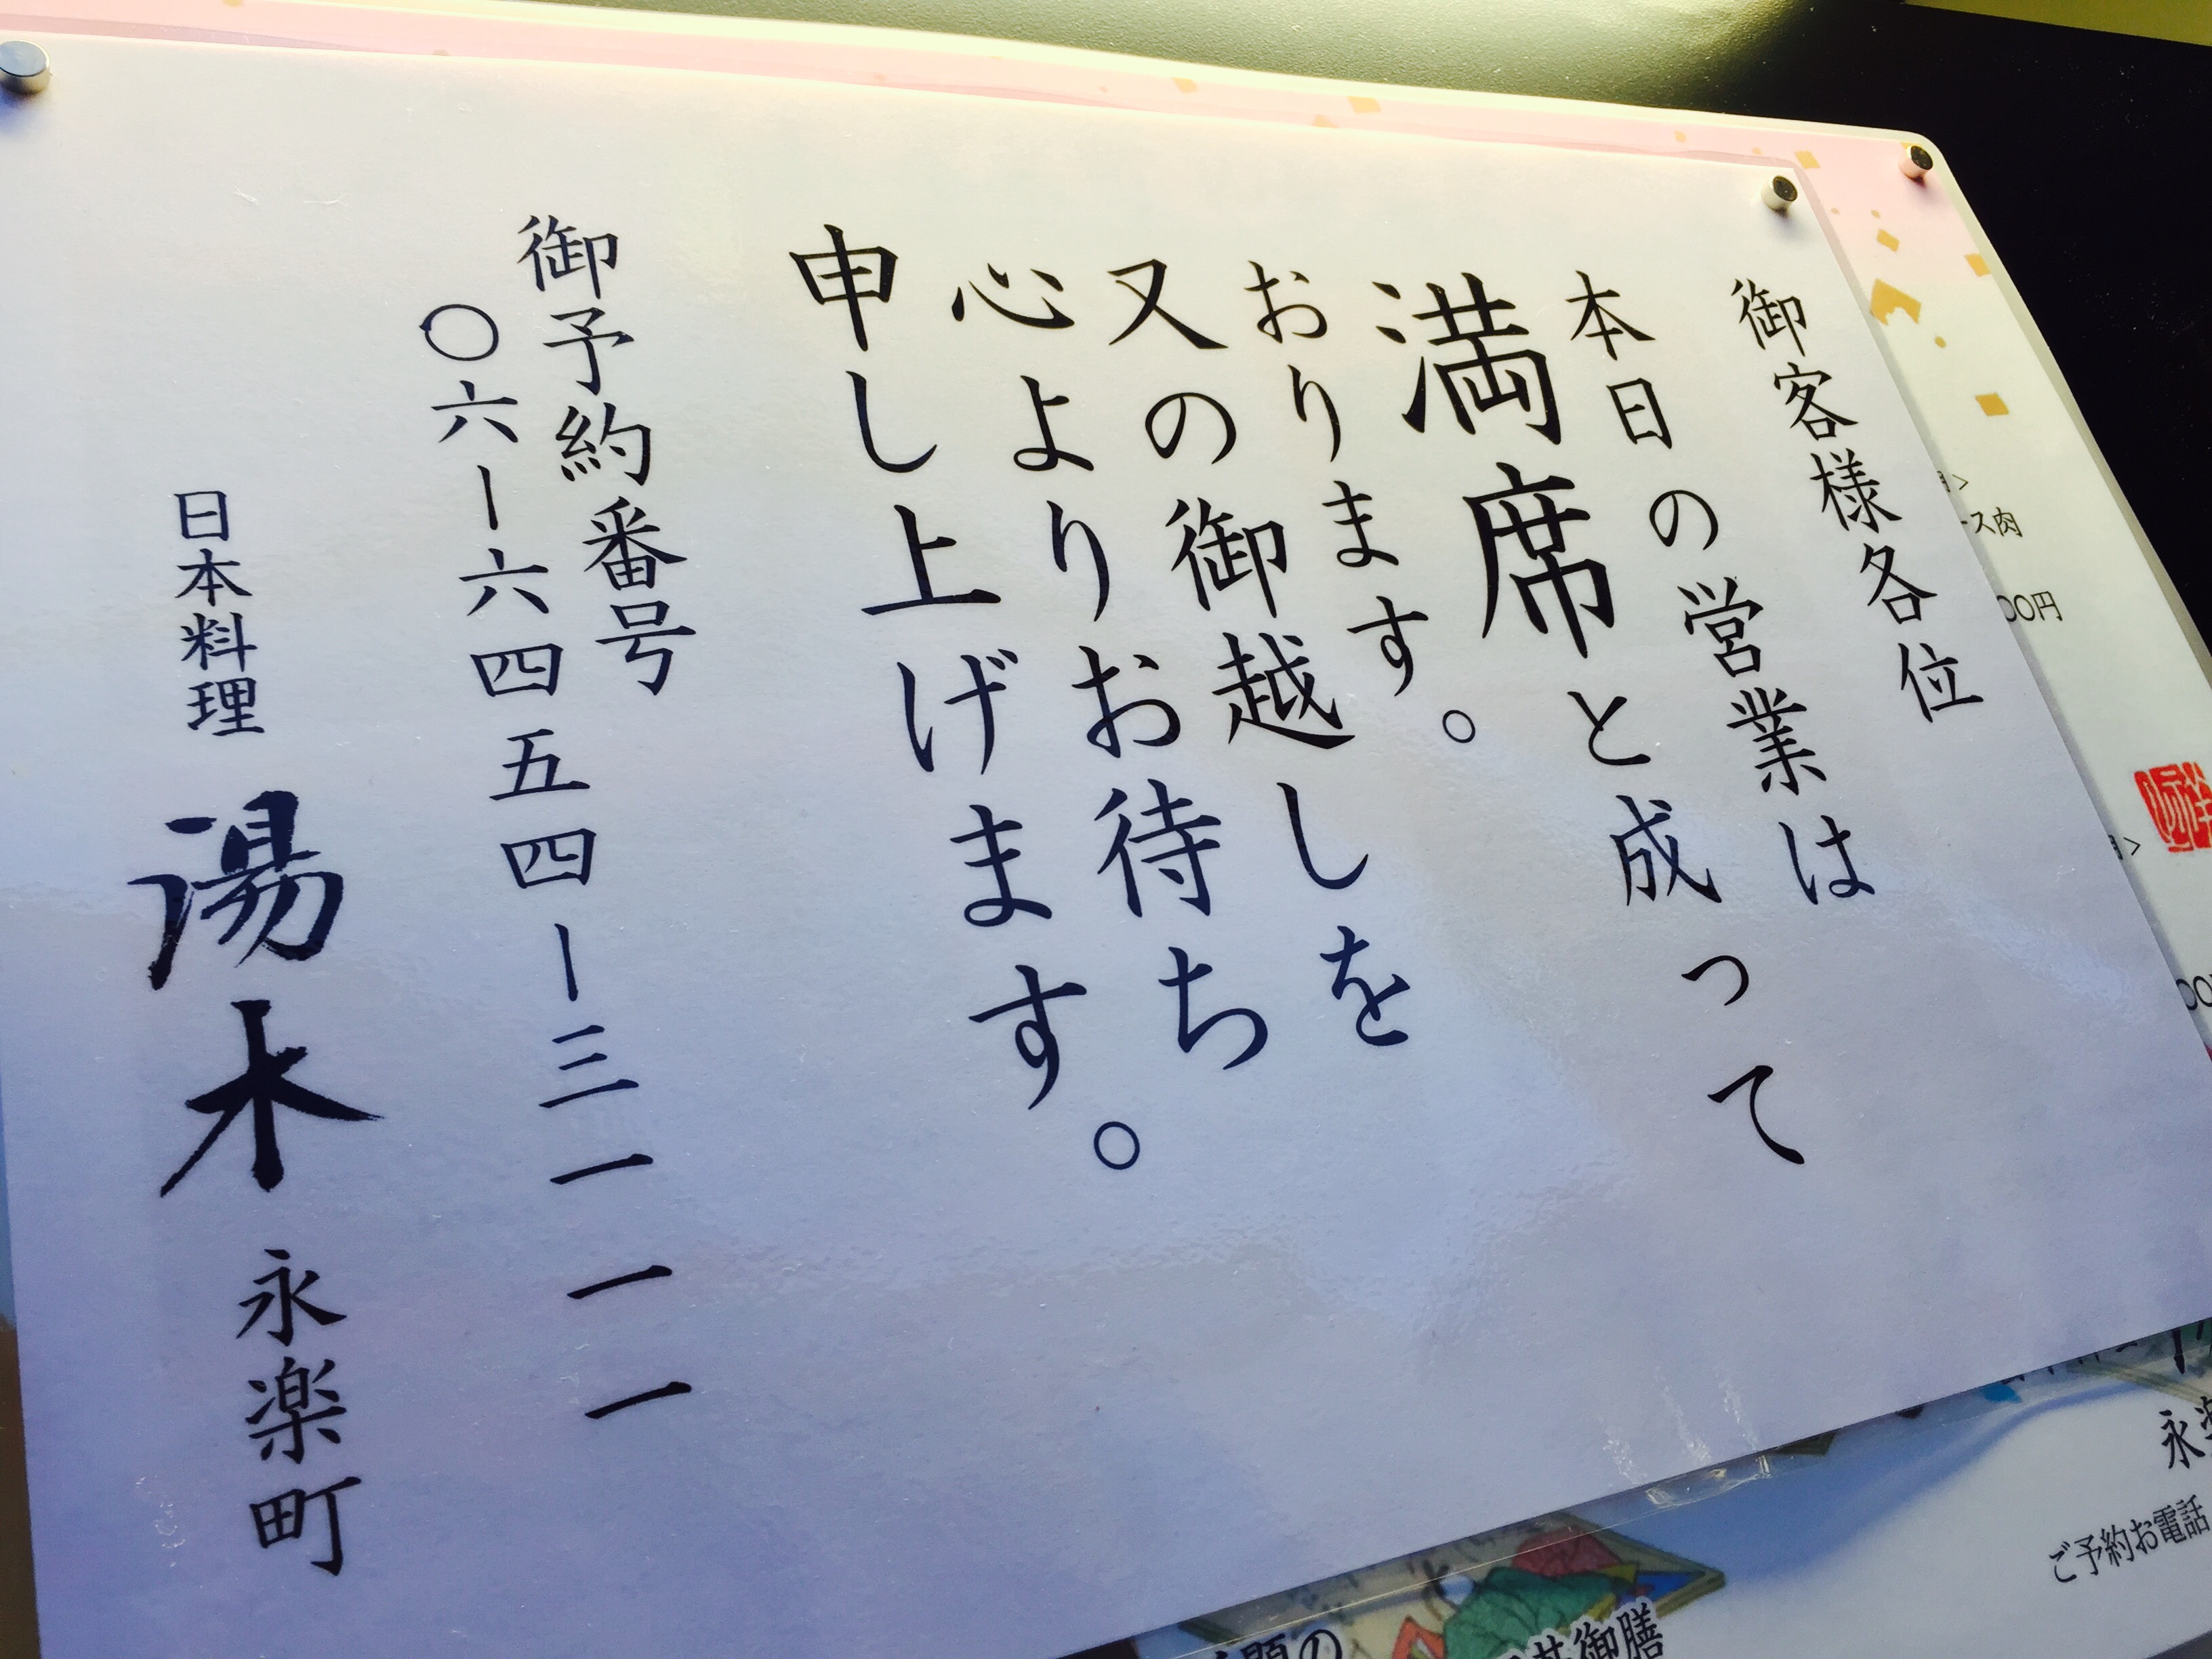 御客様各位
本日の営業は
満席と成って
おります。
又の御越しを
心よりお待ち
申し上げます。
御予約番号
〇六ー六四五四ー三一一一
日本料理 湯木 永楽町
ース肉
00円
ご予約お電話
御膳